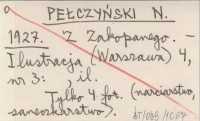 PEŁCZYŃSKI N.
1927. Z Zakopanego. –
Ilustracja (Warszawa) 4,
nr 3: ; il.
Tylko 4 fot. (narciarstwo,
saneczkarstwo).